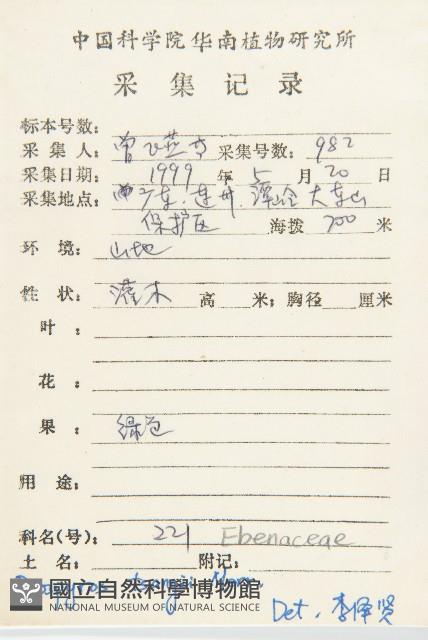 中国科学院华南植物研究所
采集记录
标本号数:
采集人: 曾飞燕 采集号数: 982
采集日期: 1999 年 5 月 20 日
采集地点: 广东,连州,潭岭大东山
保护区 海拨 700 米
环境: 山地
性状: 灌木 高 米; 胸径 厘米
叶:
花:
果: 绿色
用途:
科名(号): 221 Ebenaceae
土名: 附记:
Diospyros tsangii Merr.
國立自然科學博物館
NATIONAL MUSEUM OF NATURAL SCIENCE
Det. 李泽贤